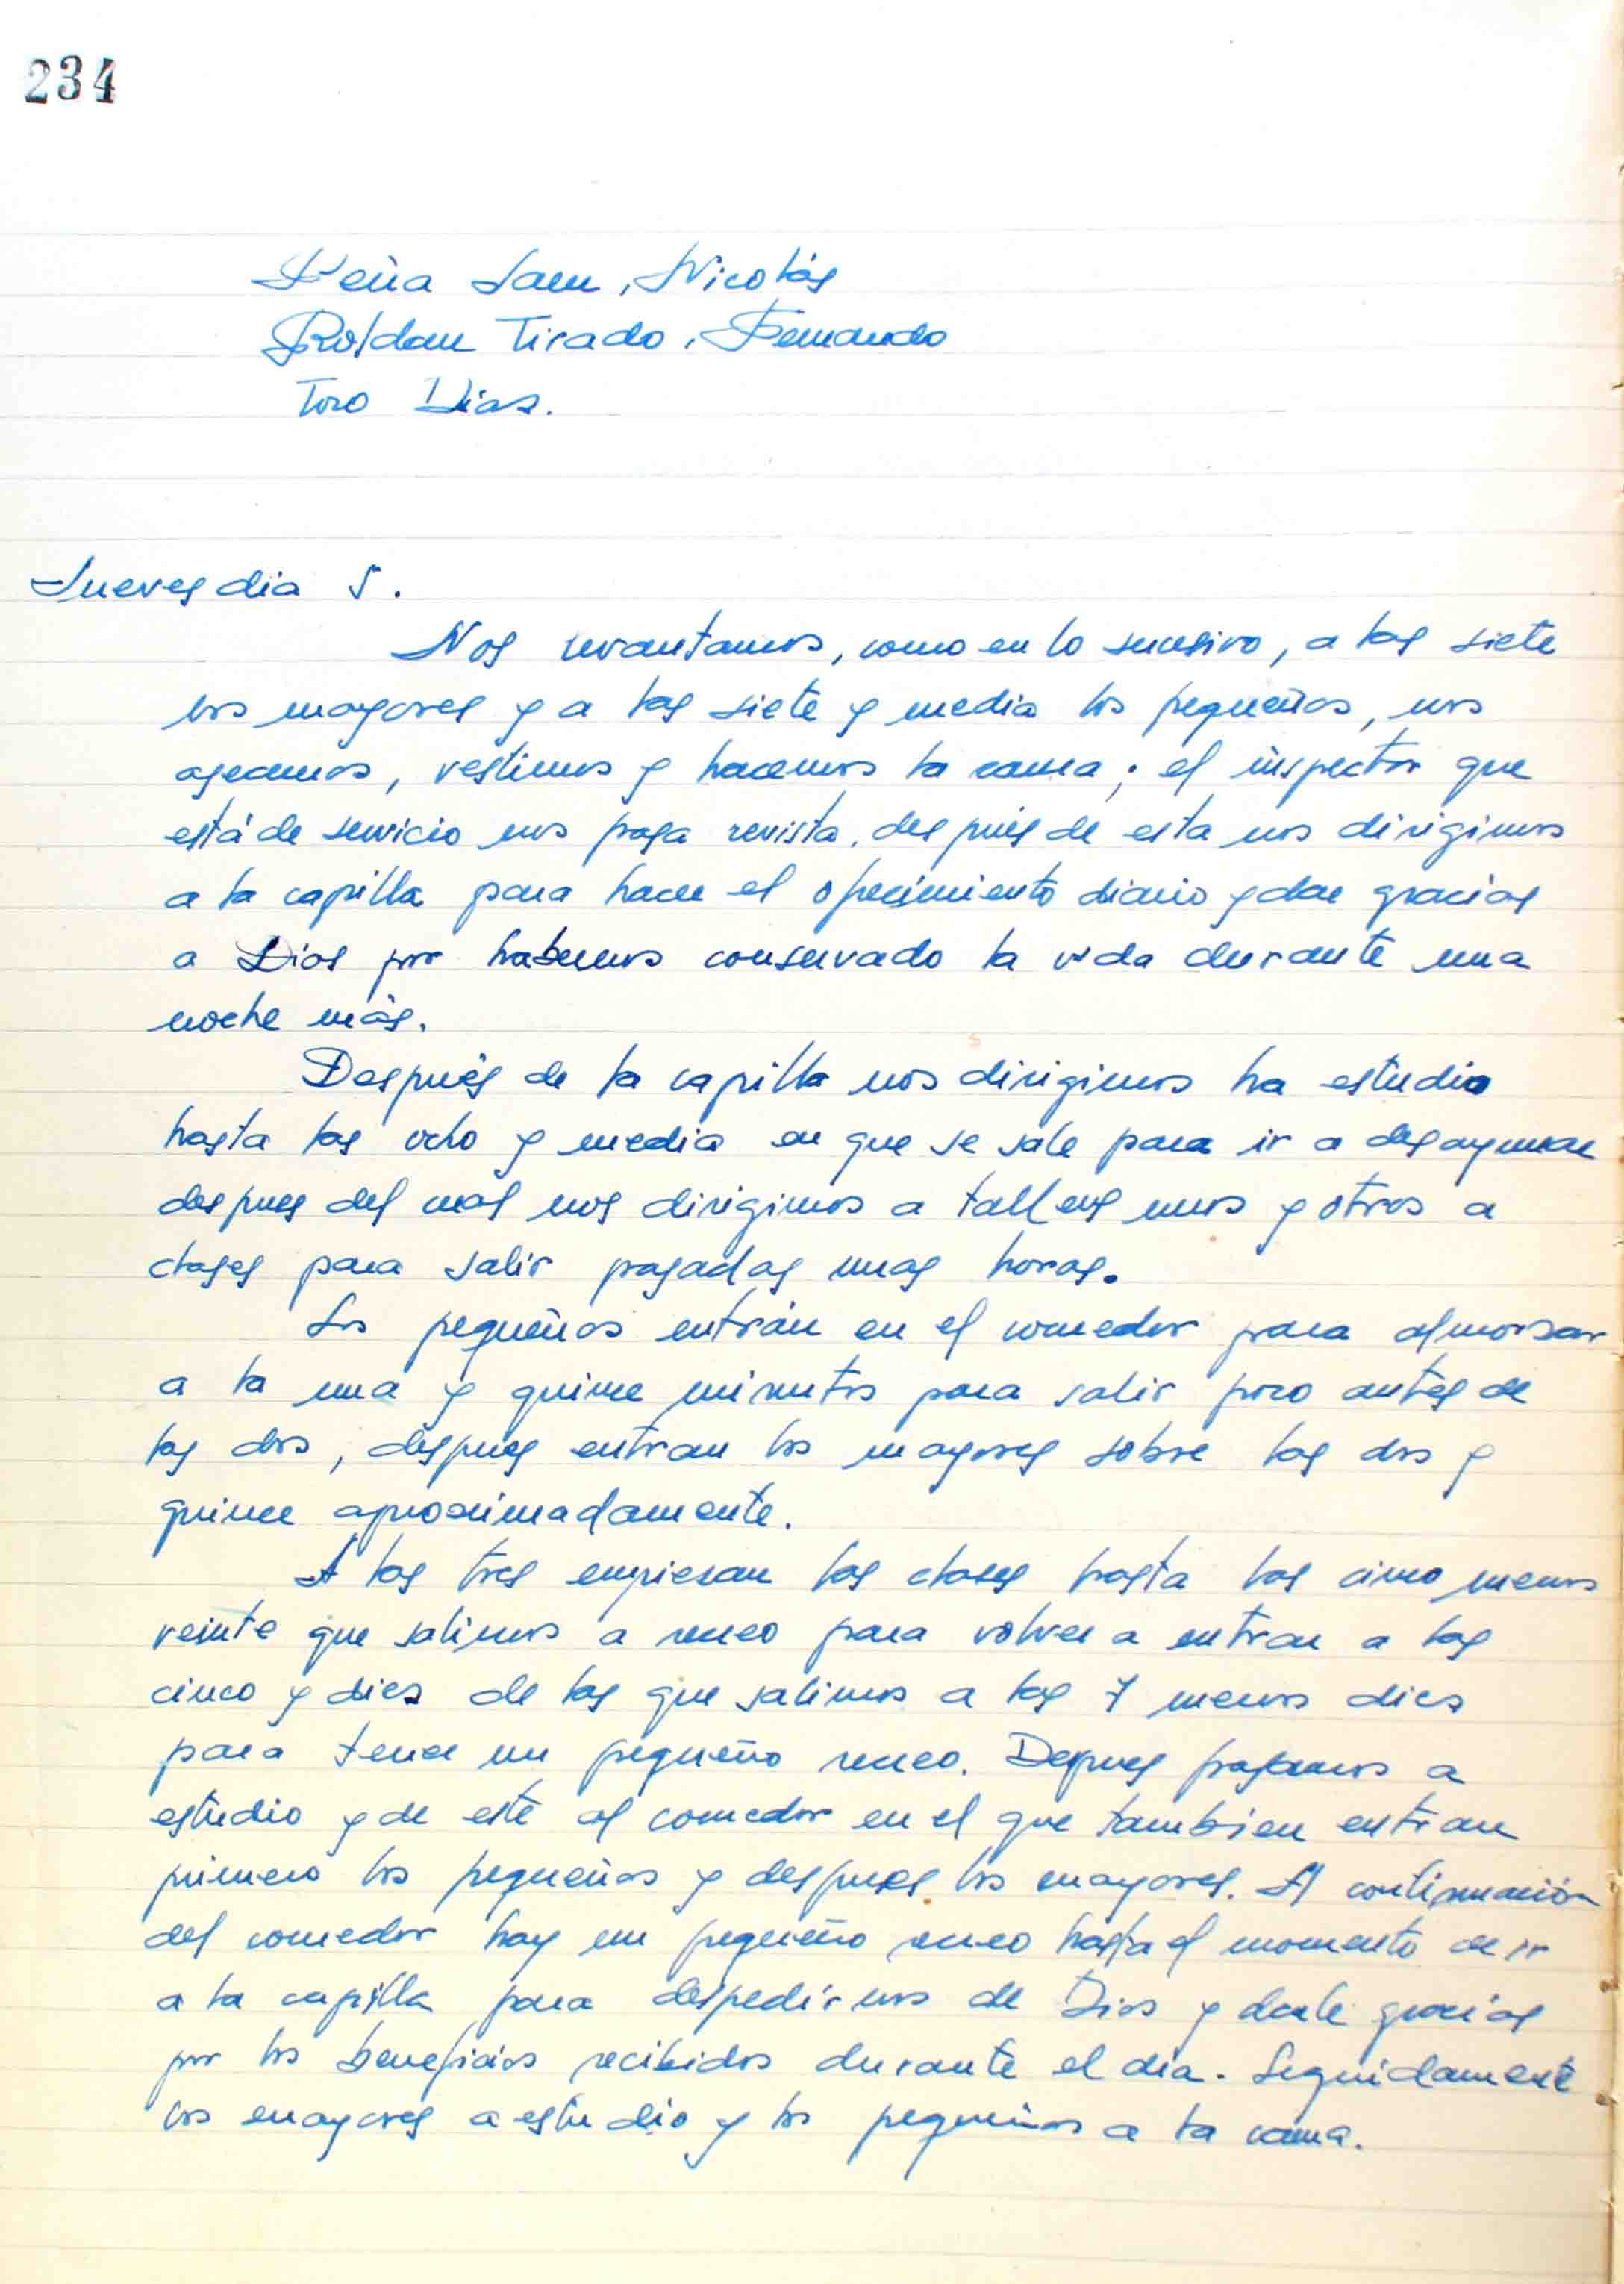 234
Peña Saen, Nicolás
Roldan Tirado, Fernando
Toro Dias.
Jueves dia 5.
Nos levantamos, como en lo sucesivo, a las siete
los mayores y a las siete y media los pequeños, nos
aseamos, vestimos y hacemos la cama; el inspector que
está de servicio nos pasa revista, después de esta nos dirigimos
a la capilla para hacer el ofrecimiento diario y dar gracias
a Dios por habernos conservado la vida durante una
noche más.
Después de la capilla nos dirigimos ha estudio
hasta las ocho y media en que se sale para ir a desayunar
despues del cual nos dirigimos a talleres unos y otros a
clases para salir pasadas unas horas.
Los pequeños entrán en el comedor para almorsar
a la una y quince minutos para salir poco antes de
las dos, despues entran los mayores sobre las dos y
quince aproximadamente.
A las tres empiesan las clases hasta las cinco menos
veinte que salimos a recreo para volver a entrar a las
cinco y dies de las que salimos a las 7 menos dies
para tener un pequeño recreo. Depues pasamos a
estudio y de este al comedor en el que tambien entran
primero los pequeños y despues los mayores. A continuación
del comedor hay un pequeño recreo hasta el momento de ir
a la capilla para despedirnos de Dios y darle gracias
por los beneficios recibidos durante el dia. Seguidamente
los mayores a estudio y los pequeños a la cama.